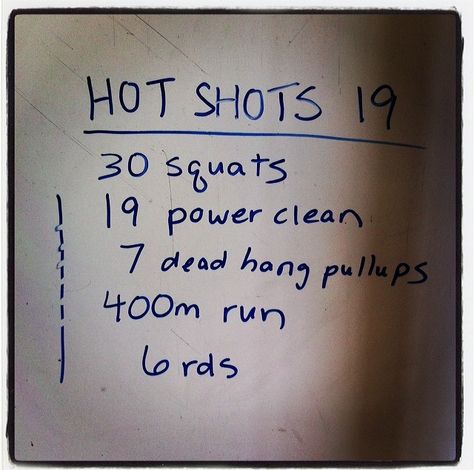 HOT SHOTS 19
30 squats
19 power clean
7 dead hang pullups
400m run
6 rds